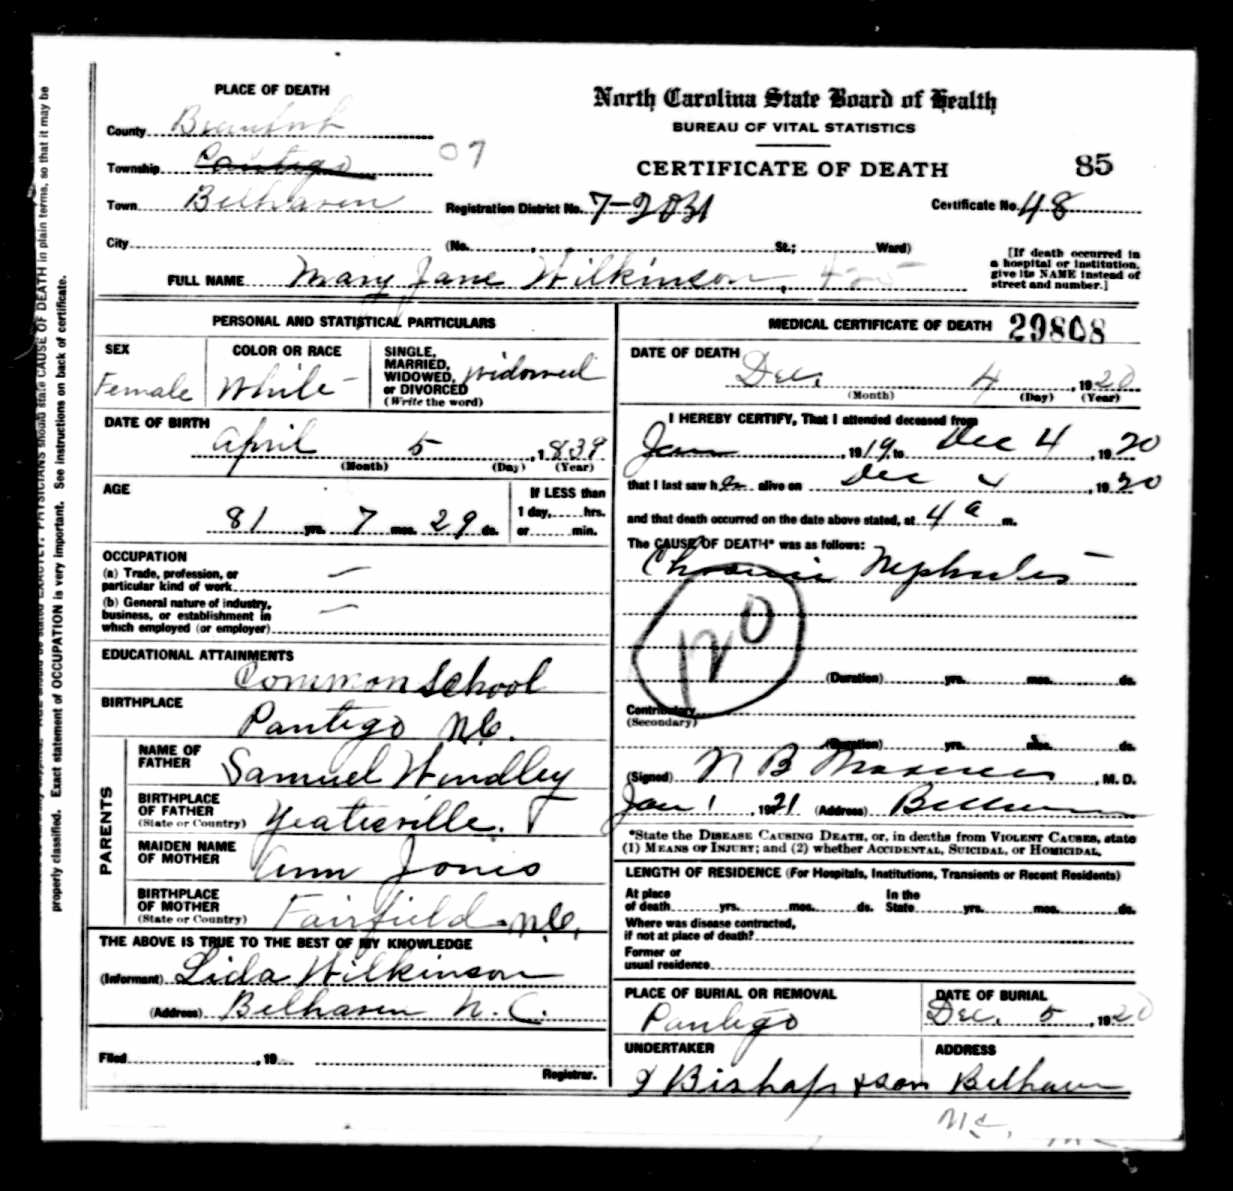 PLACE OF DEATH
North Carolina State Board of Health
BUREAU OF VITAL STATISTICS
CERTIFICATE OF DEATH
85
County Beaufort
Township Pantego
07
Town Belhaven
Registration District No. 7-2031
Certificate No. 48
City (No. St.; Ward)
[If death occurred in
a hospital or institution,
give its NAME instead of
street and number.]
FULL NAME Mary Jane Wilkinson,
PERSONAL AND STATISTICAL PARTICULARS
SEX
Female
COLOR OR RACE
White
SINGLE,
MARRIED,
WIDOWED,
or DIVORCED
(Write the word)
Widowed
DATE OF BIRTH
April 5, 1839
(Month) (Day) (Year)
AGE
81 yrs. 7 mos. 29 ds.
If LESS than
1 day, hrs.
or min.
OCCUPATION
(a) Trade, profession, or
particular kind of work
(b) General nature of industry,
business, or establishment in
which employed (or employer)
EDUCATIONAL ATTAINMENTS
Common School
BIRTHPLACE
Pantego N.C.
PARENTS
NAME OF
FATHER
Samuel Windley
BIRTHPLACE
OF FATHER
(State or Country)
Yeatesville.
MAIDEN NAME
OF MOTHER
Ann Jones
BIRTHPLACE
OF MOTHER
(State or Country)
Fairfield N.C.
THE ABOVE IS TRUE TO THE BEST OF MY KNOWLEDGE
(Informant) Lida Wilkinson
(Address) Belhaven N.C.
Filed , 19
Registrar.
MEDICAL CERTIFICATE OF DEATH 29808
DATE OF DEATH
Dec. 4, 1920
(Month) (Day) (Year)
I HEREBY CERTIFY, That I attended deceased from
Jan, 1919, to Dec 4, 1920
that I last saw her alive on Dec 4, 1920
and that death occurred on the date above stated, at 4 a m.
The CAUSE OF DEATH* was as follows:
Chronic Nephritis
120
(Duration) yrs. mos. ds.
Contributory
(Secondary)
(Duration) yrs. mos. ds.
(Signed) N B , M. D.
Jan 1, 1921 (Address) Belhaven
*State the DISEASE CAUSING DEATH, or, in deaths from VIOLENT CAUSES, state
(1) MEANS OF INJURY; and (2) whether ACCIDENTAL, SUICIDAL, or HOMICIDAL,
LENGTH OF RESIDENCE (For Hospitals, Institutions, Transients or Recent Residents)
At place
of death yrs. mos. ds.
In the
State yrs. mos. ds.
Where was disease contracted,
if not at place of death?
Former or
usual residence
PLACE OF BURIAL OR REMOVAL
Pantego
DATE OF BURIAL
Dec. 5, 1920
UNDERTAKER
Bishop & son
ADDRESS
Belhaven
N.C.
properly classified. Exact statement of OCCUPATION is very important. See instructions on back of certificate.